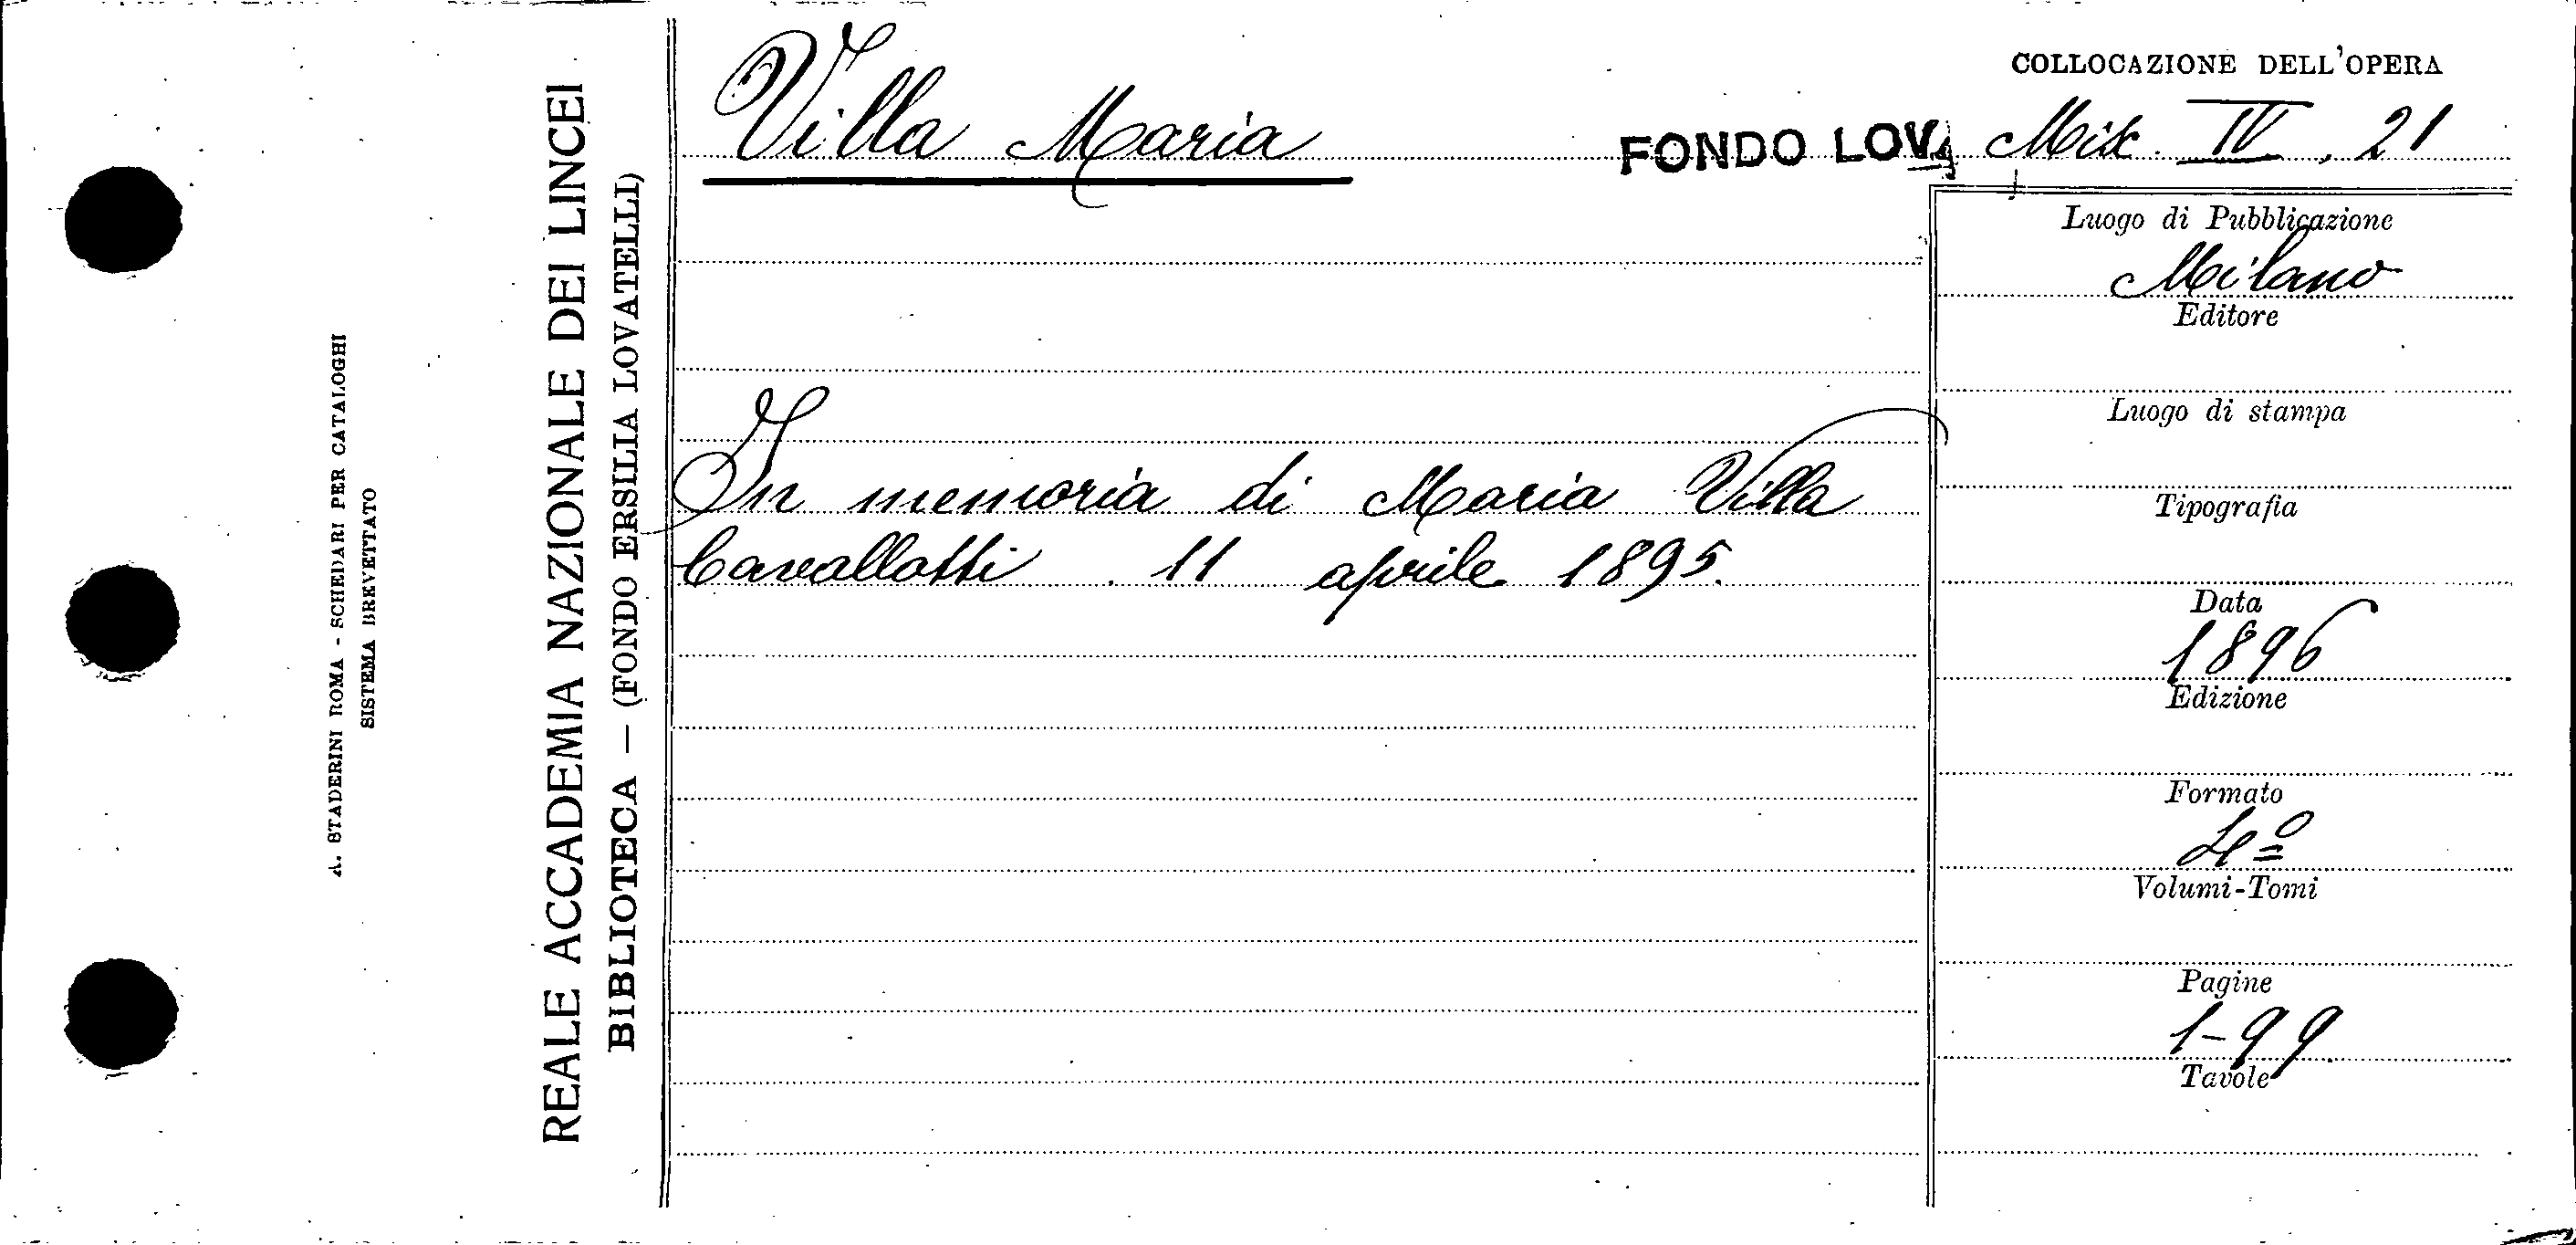 A. STADERINI ROMA - SCHEDARI PER CATALOGHI
SISTEMA BREVETTATO
REALE ACCADEMIA NAZIONALE DEI LINCEI
BIBLIOTECA — (FONDO ERSILIA LOVATELLI)
Villa Maria
In memoria di Maria Villa
Cavallotti. 11 aprile 1895.
COLLOCAZIONE DELL'OPERA
FONDO LOV. Misc. IV, 21
Luogo di Pubblicazione
Milano
Editore
Luogo di stampa
Tipografia
Data
1896
Edizione
Formato
4º
Volumi-Tomi
Pagine
1-99
Tavole